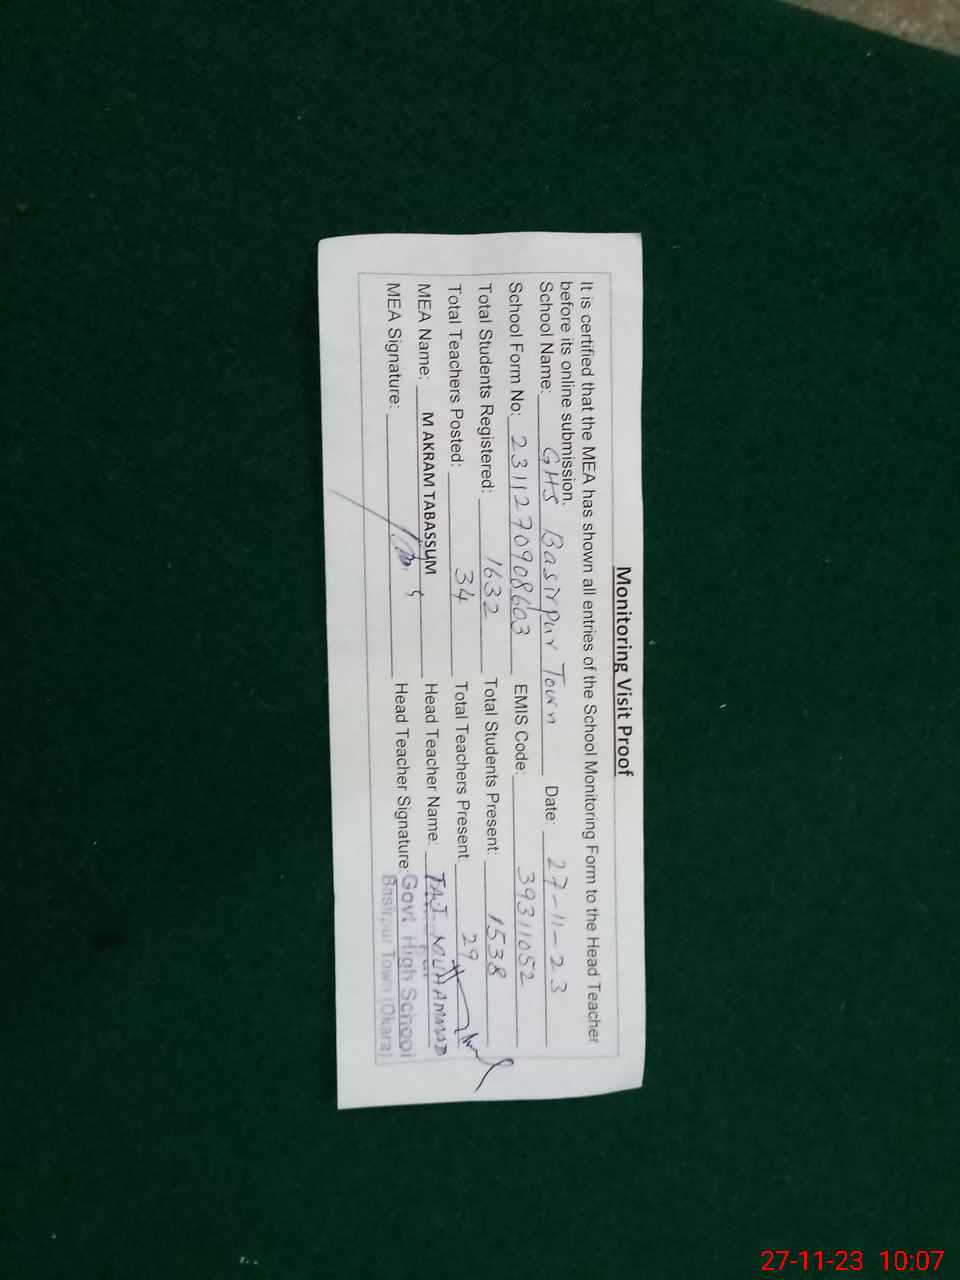 Monitoring Visit Proof
It is certified that the MEA has shown all entries of the School Monitoring Form to the Head Teacher
before its online submission.
School Name: GHS Basirpur Town Date: 27-11-23
School Form No: 2311270908603 EMIS Code: 39311052
Total Students Registered: 1632 Total Students Present: 1538
Total Teachers Posted: 34 Total Teachers Present: 29
MEA Name: M AKRAM TABASSUM Head Teacher Name: TAJ MUHAMMAD
MEA Signature: Head Teacher Signature: Govt. High School
Basirpur Town (Okara)
27-11-23 10:07